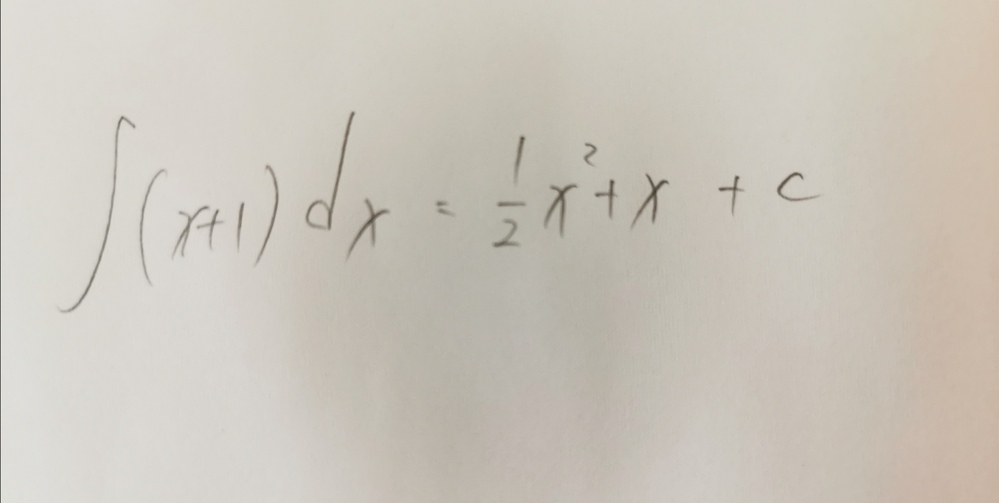 ∫(x+1) dx = 1/2 x² + x + c